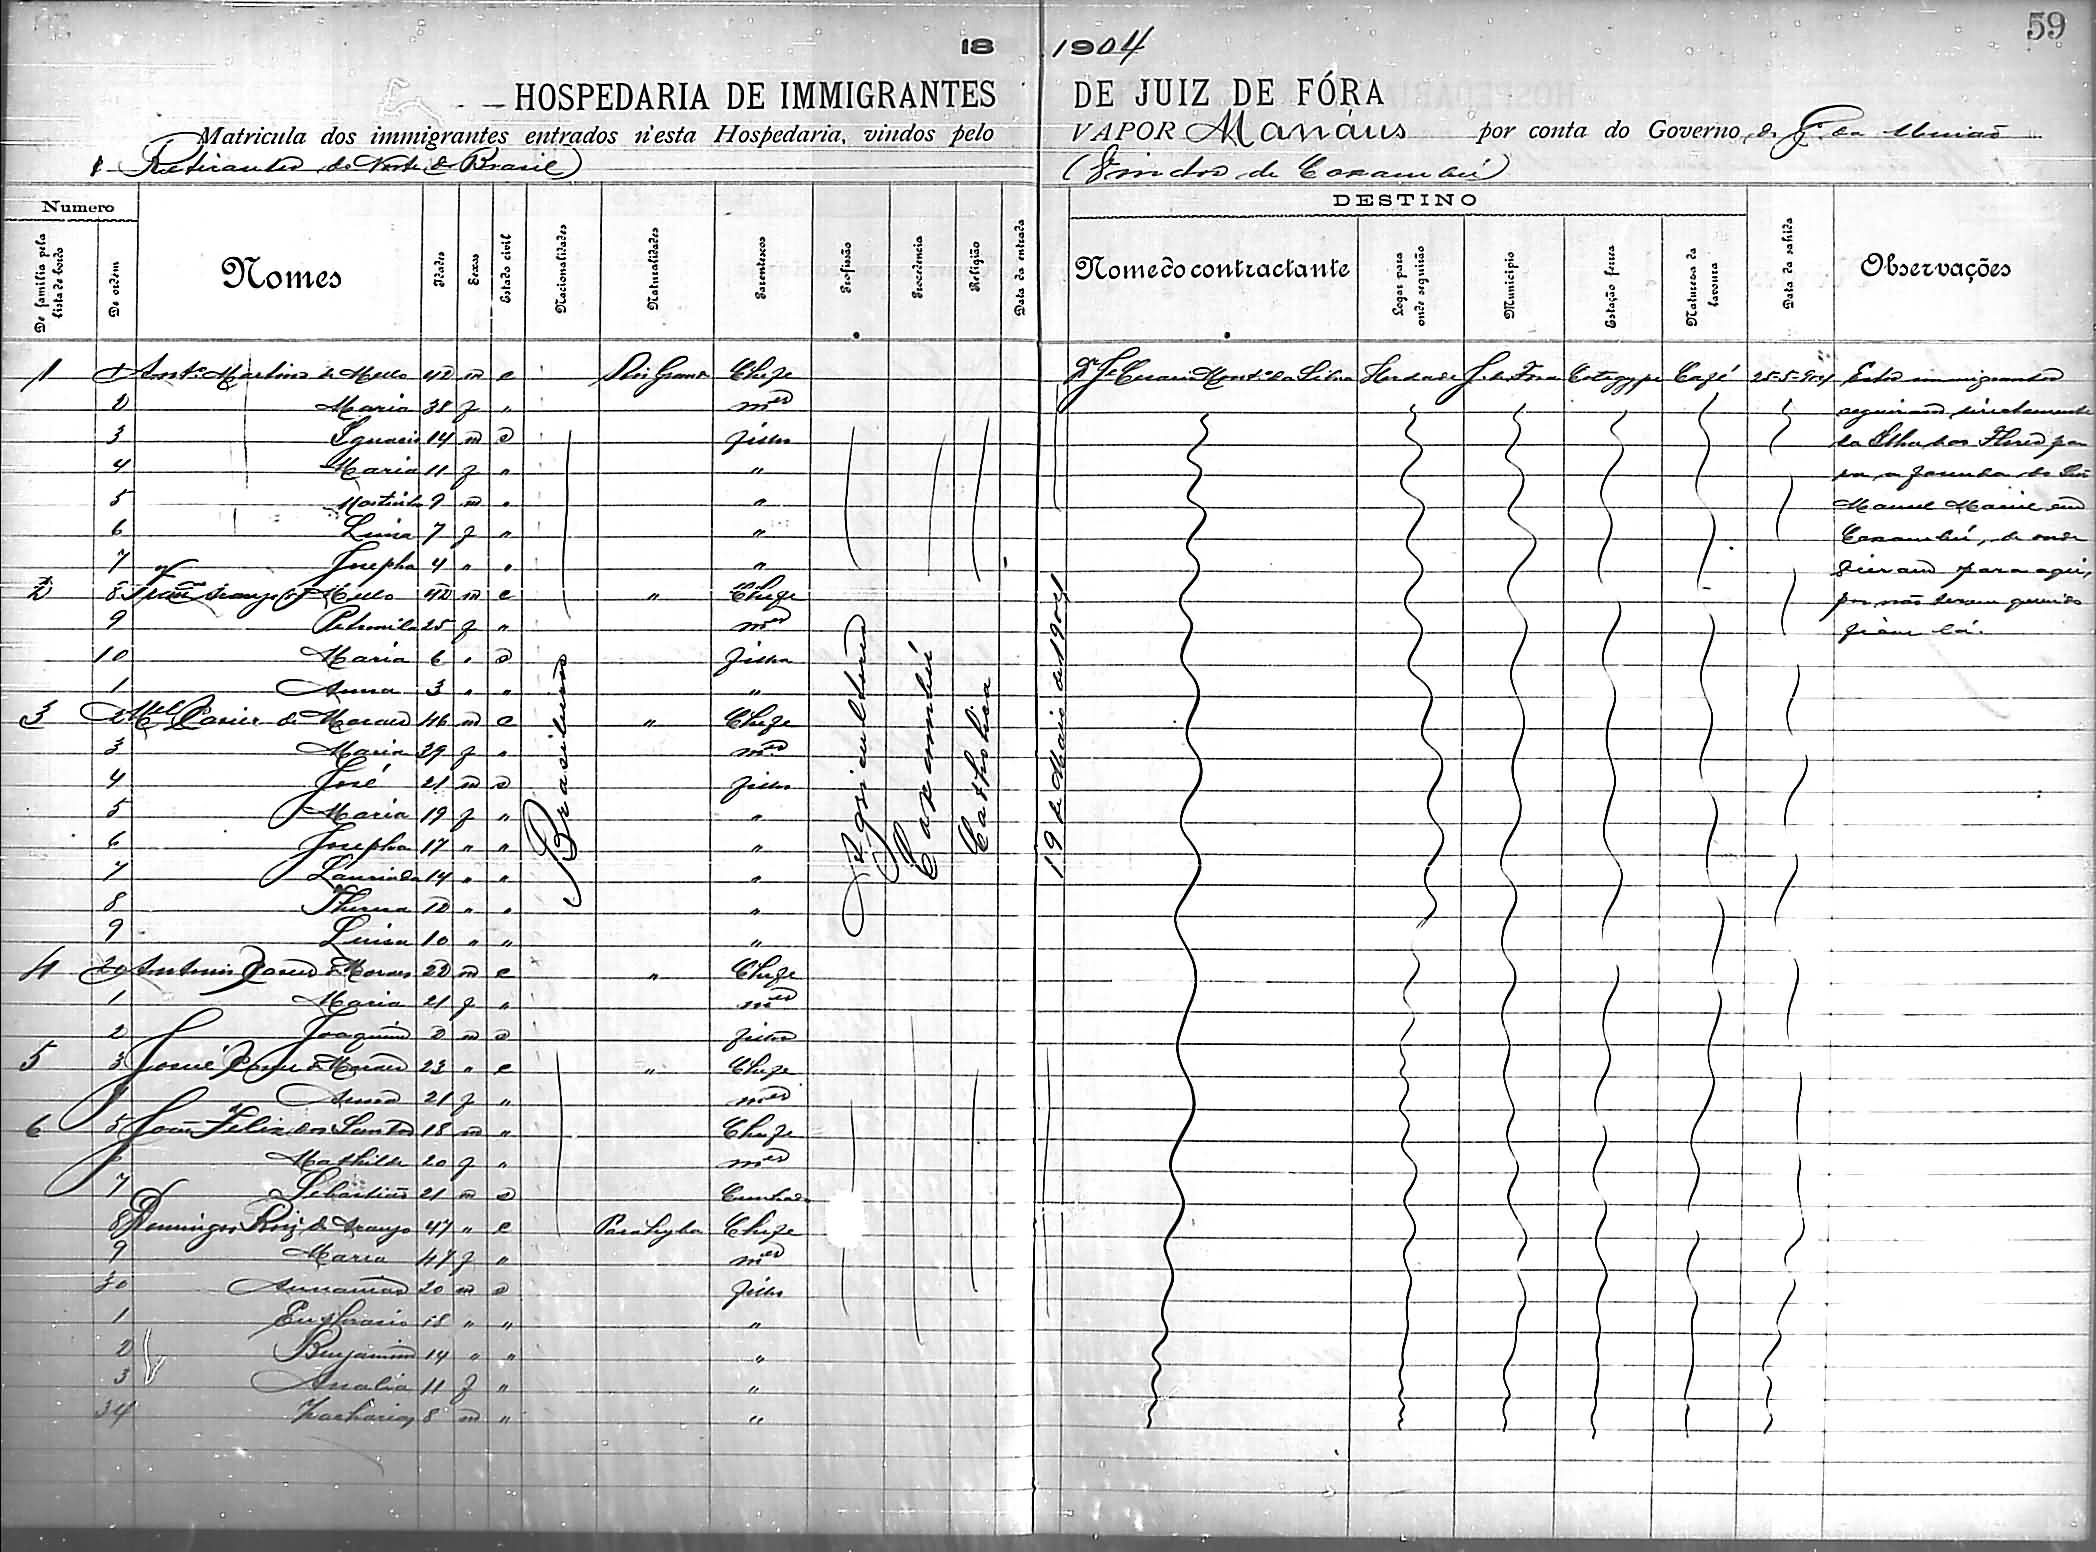 59
18 1904
HOSPEDARIA DE IMMIGRANTES DE JUIZ DE FÓRA
Matricula dos immigrantes entrados n'esta Hospedaria, vindos pelo VAPOR Manáus por conta do Governo da União
Retirantes do Norte do Brasil) (Vindos de Caxambú)
Numero DESTINO
De familia pela lista de bordo De ordem Nomes Idades Sexos Estado civil Nacionalidades Naturalidades Parentescos Profissão Procedencia Religião Data da entrada Nome do contractante Logar para onde seguirão Municipio Estação ferrea Natureza da lavoura Data da sahida Observações
1 1 Antº Martins de Mello 42 m c Rio Grande Chefe Dr Je Cesario Montº da Silva Herdade J. de Fora Cotegype Café 25-5-904 Estes immigrantes
2 Maria 38 f " mer seguiram directamente
3 Ignacio 14 m s filho da Ilha das Flores pa
4 Maria 11 f " " ra a fazenda do Snr
5 9 m " " Manuel em
6 Luisa 7 f " " Caxambú, de onde
7 Josepha 4 " " " vieram para aqui,
2 8 Mello 42 m c " Chefe por não terem querido
9 Petronila 25 f " mer ficar lá.
10 Maria 6 " s filha
1 Anna 3 " " "
3 2 Mel Xavier de Moraes 46 m c " Chefe
3 Maria 39 f " mer
4 José 21 m s filho
5 Maria 19 f " "
6 Josepha 17 " " "
7 14 " " "
8 Thereza 12 " " "
9 Luisa 10 " " "
4 20 Antonio Xavier de Moraes 22 m c " Chefe
1 Maria 21 f " mer
2 Joaquim 2 m s filho
5 3 Josué Xavier de Moraes 23 " c " Chefe
4 Anna 21 f " mer
6 5 João Felix dos Santos 18 m " Chefe
6 Mathilde 20 f " mer
7 Sebastião 21 m s Cunhado
8 Domingos Roiz de Araujo 47 " c Parahyba Chefe
9 Maria 47 f " mer
30 20 m s filho
1 Eufrasio 18 " " "
2 Benjamim 14 " " "
3 Analia 11 f " "
34 Zacharias 8 m " "
Brasileiros
Agricultores
Caxambú
Catholica
19 de Maio de 1904